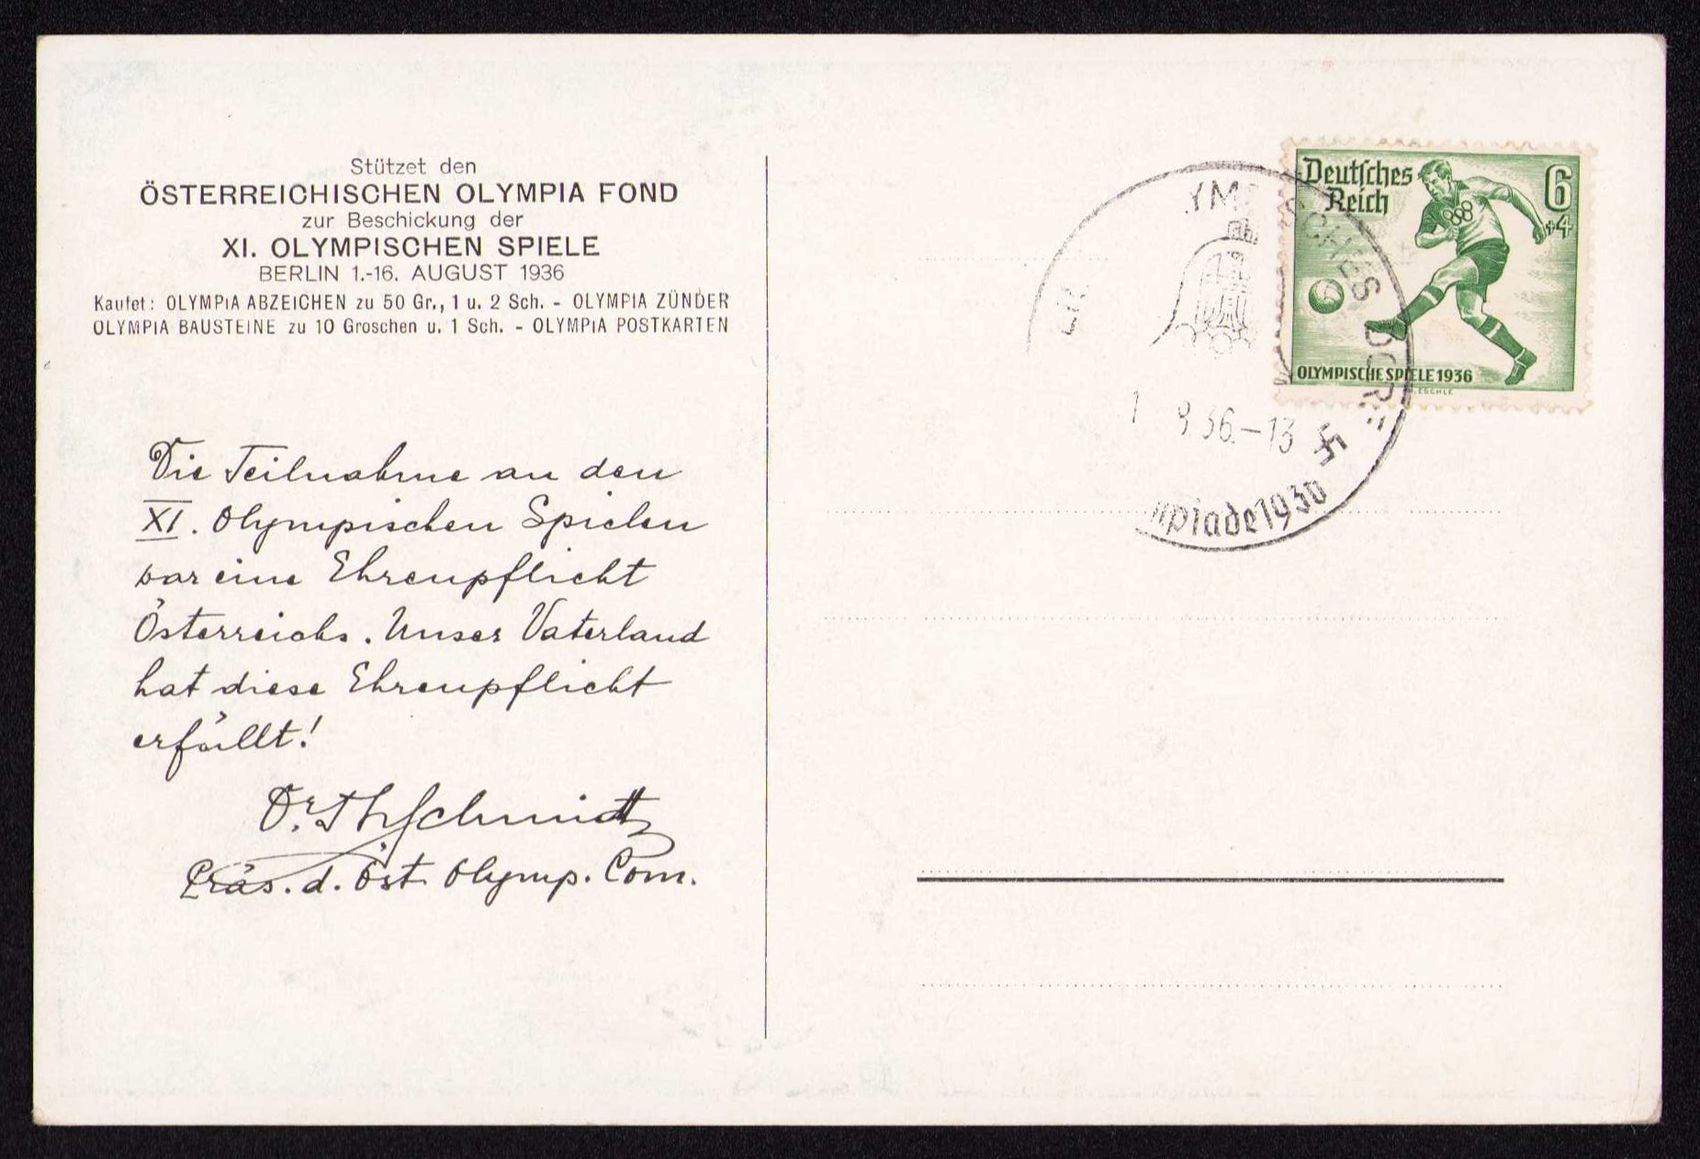 Stützet den
ÖSTERREICHISCHEN OLYMPIA FOND
zur Beschickung der
XI. OLYMPISCHEN SPIELE
BERLIN 1.-16. AUGUST 1936
Kaufet: OLYMPIA ABZEICHEN zu 50 Gr., 1 u. 2 Sch. - OLYMPIA ZÜNDER
OLYMPIA BAUSTEINE zu 10 Groschen u. 1 Sch. - OLYMPIA POSTKARTEN
Die Teilnahme an den
XI. Olympischen Spielen
war eine Ehrenpflicht
Österreichs. Unser Vaterland
hat diese Ehrenpflicht
erfüllt!
Dr. Th Schmidt
Präs. d. Öst. Olymp. Com.
Deutsches
Reich
6
+4
OLYMPISCHE SPIELE 1936
YMPISCHES DORF
36.-13
mpiade 1936